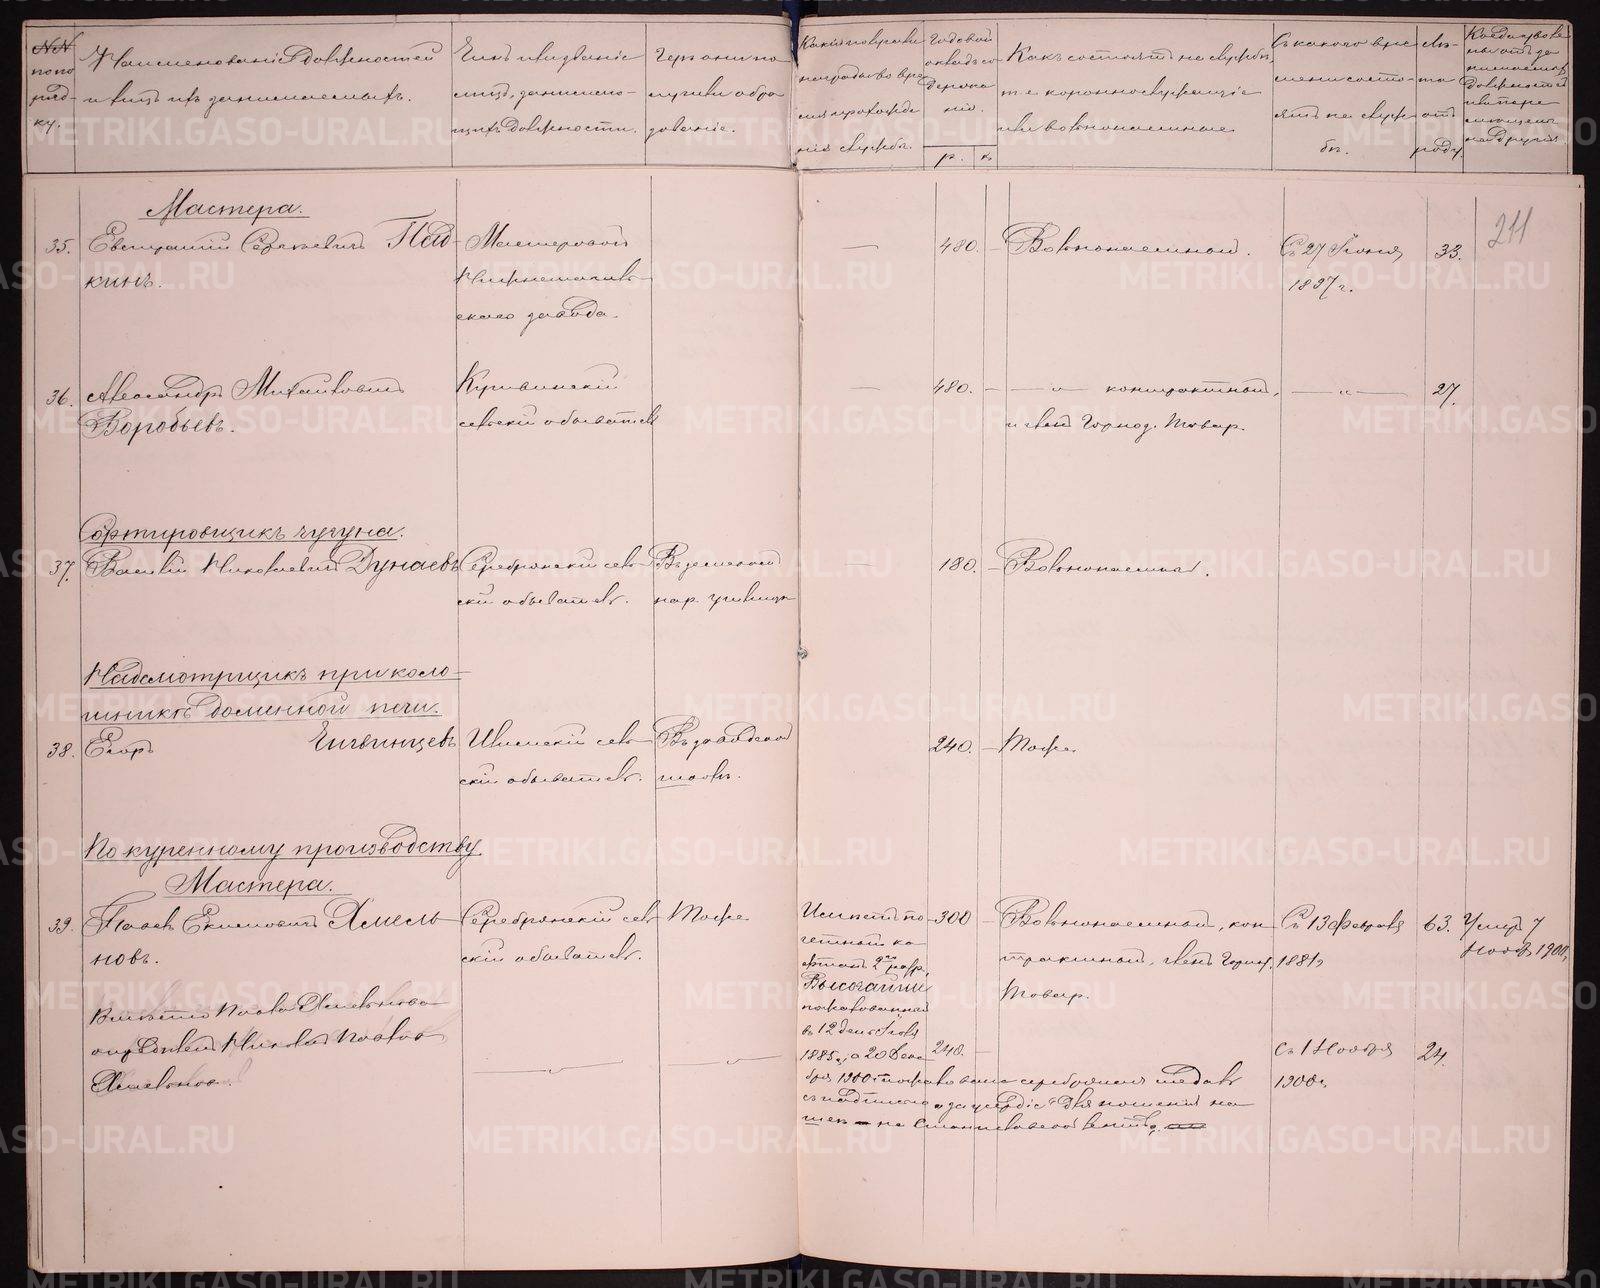 №№ по поряд-ку.
Наименованіе должностей
и лицъ ихъ занимаемыхъ.
Чинъ или званіе
лицъ, занимаю-
щихъ должности.
Гдѣ они по-
лучили обра-
зованіе.
Какія получили
награды во вре-
мя прохожде-
нія службы.
Годовой
окладъ со-
держа-
нія.
р. к.
Какъ состоятъ на службѣ,
т. е. коронно служащіе
или вольнонаемные
Съ какого вре-
мени состо-
ятъ на служ-
бѣ.
Лѣ-
та
отъ
роду.
211
Мастера.
35. Евстратій Сергѣевичъ Пад-
кинъ.
Мастеровой
Нижнетагиль-
скаго завода.
— 480. — Вольнонаемный. Съ 27 Іюня
1897 г.
33.
36. Александръ Михайловичъ
Воробьевъ.
Кушвинскій
сельскій обыватель
— 480. — — „ — контрактный,
и членъ Горноз. Товар.
— „ — 27.
Сортировщикъ чугуна.
37. Василій Николаевичъ Дунаевъ
Серебрянскій сель-
скій обыватель.
Въ земской
нар. училищѣ
— 180. — Вольнонаемный.
Надсмотрщикъ при коло-
шникѣ доменной печи.
38. Егоръ Чигвинцевъ
сель-
скій обыватель.
Въ заводской
школѣ.
240. — Тоже.
По куренному производству
Мастера.
39. Павелъ Екимовичъ Хмель-
новъ.
Серебрянскій сель-
скій обыватель.
Тоже
Имѣетъ по-
четный ка-
фтанъ 2го разр.
Высочайше
пожалованный
въ 12 день Іюля
1885 г., а 20 Дека-
бря 1900 г. пожалована серебряная медаль
съ надписью „за усердіе" для ношенія на
шеѣ на Станиславской лентѣ,
300 — Вольнонаемный, кон-
трактный, членъ Горноз.
Товар.
Съ 13 Февраля
1881 г.
63. Умеръ 7
Нояб. 1900 г.
Вмѣсто Павла Хмельнова
опредѣленъ Николай Павлов
Хмельнов.
— „ — — „ — 240. — Съ 1 Ноября
1900 г.
24.
METRIKI.GASO-URAL.RU